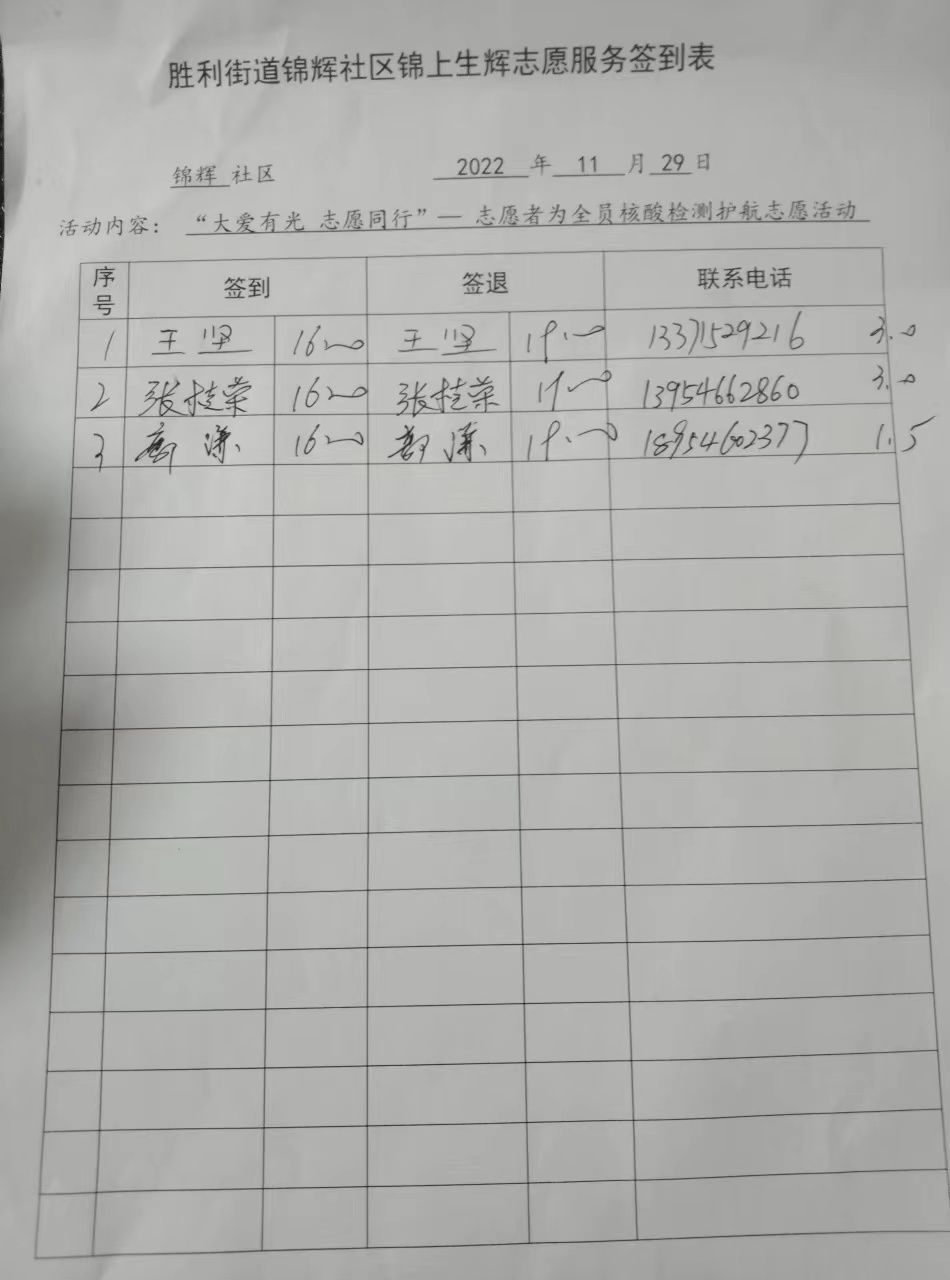 胜利街道锦辉社区锦上生辉志愿服务签到表
锦辉 社区 2022 年 11 月 29 日
活动内容： “大爱有光 志愿同行”— 志愿者为全员核酸检测护航志愿活动
序号 签到 签退 联系电话
1 王坚 16:00 王坚 19:00 13371529216 3.0
2 张桂荣 16:00 张桂荣 19:00 13954662860 3.0
3 16:00 19:00 18954602377 1.5